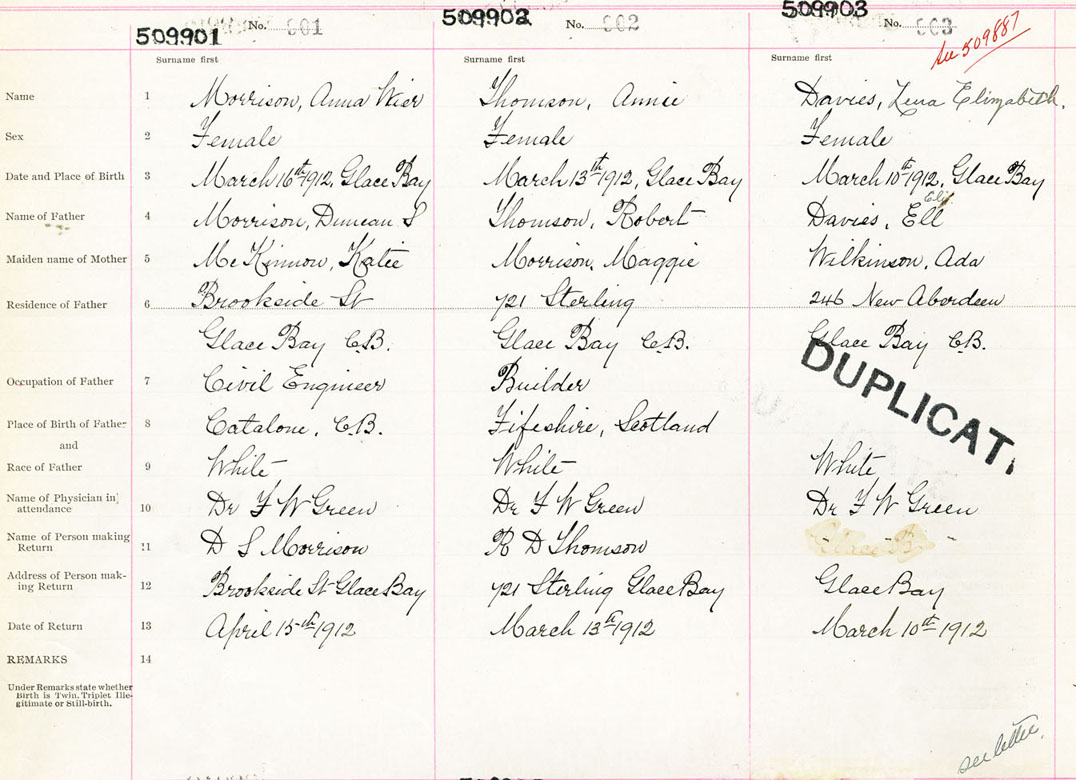 509901 No. 001 509902 No. 002 509903 No. 003
see 509887
Surname first Surname first Surname first
Name 1 Morrison, Anna Weir Thomson, Annie Davies, Lena Elizabeth.
Sex 2 Female Female Female
Date and Place of Birth 3 March 16th 1912, Glace Bay March 13th 1912, Glace Bay March 10th 1912, Glace Bay
Eli
Name of Father 4 Morrison, Duncan S Thomson, Robert Davies, Ell
Maiden name of Mother 5 McKinnon, Katie Morrison, Maggie Wilkinson, Ada
Residence of Father 6 Brookside St 721 Sterling 246 New Aberdeen
Glace Bay C.B. Glace Bay C.B. Glace Bay C.B.
DUPLICAT
Occupation of Father 7 Civil Engineer Builder
Place of Birth of Father 8 Catalone, C.B. Fifeshire, Scotland
and
Race of Father 9 White White White
Name of Physician in attendance 10 Dr F W Green Dr F W Green Dr F W Green
Name of Person making Return 11 D S Morrison R D Thomson
Address of Person mak-ing Return 12 Brookside St Glace Bay 721 Sterling Glace Bay Glace Bay
Date of Return 13 April 15th 1912 March 13th 1912 March 10th 1912
REMARKS 14
Under Remarks state whether
Birth is Twin, Triplet Ille-
gitimate or Still-birth.
see letter.